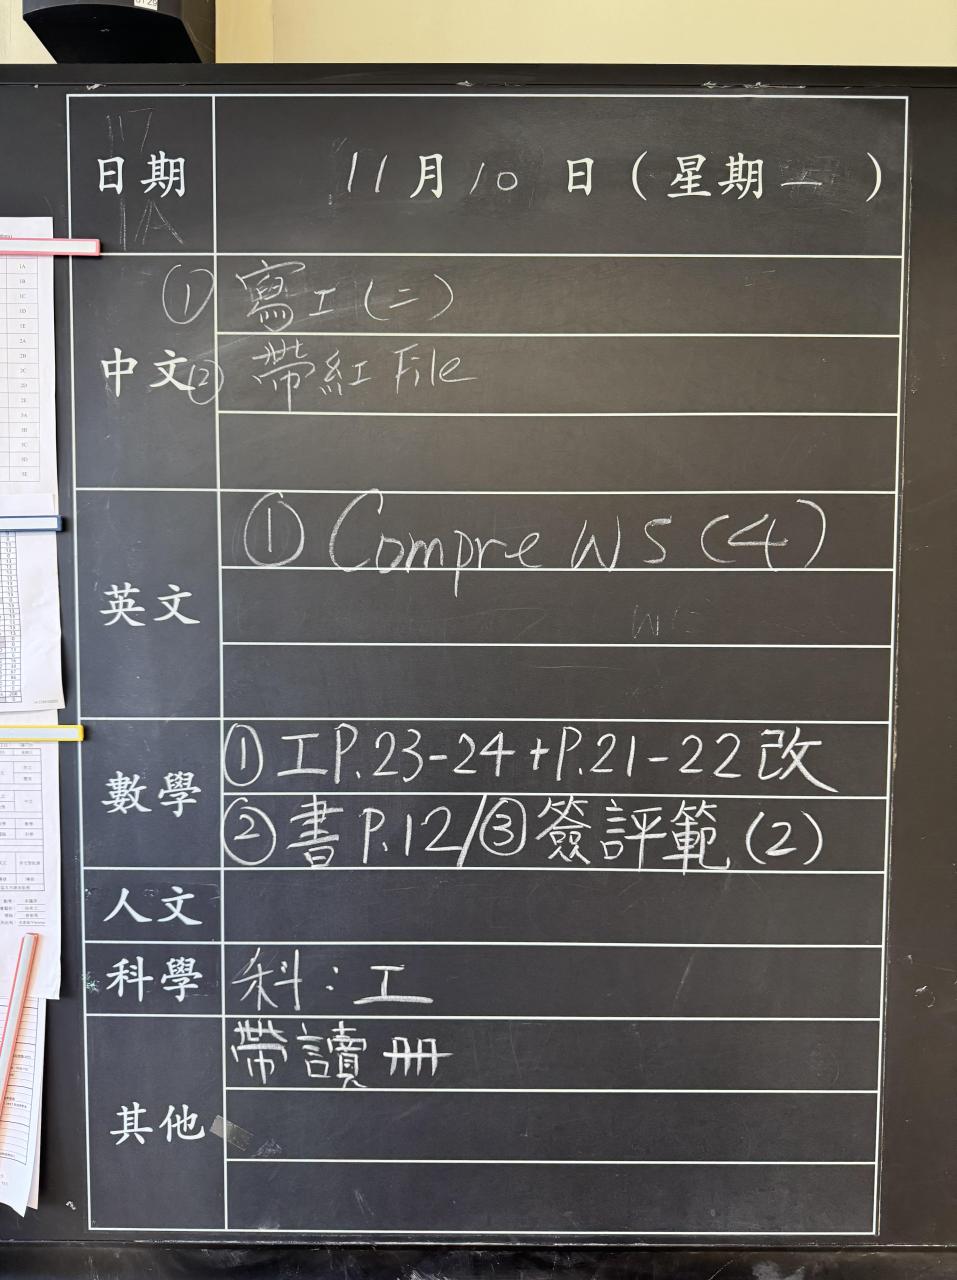 日期 11月10日(星期一)
中文
① 寫工(二)
② 帶紅 File
英文
① Compre WS (4)
數學
① 工P.23-24 + P.21-22 改
② 書 P.12/③ 簽評範(2)
人文
科學
科:工
其他
帶讀冊